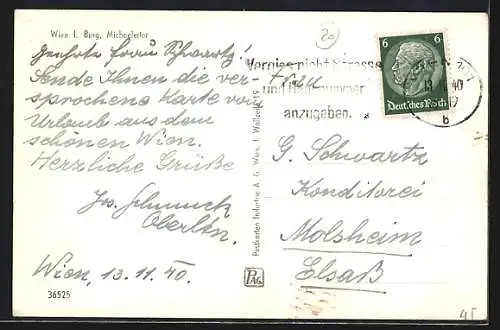 Wien I. Burg, Michaelertor
Geehrte Frau Schwartz!
Sende Ihnen die ver-
sprochene Karte von
Urlaub aus dem
schönen Wien.
Herzliche Grüße
Jos. Schmuck
Oberltn.
Wien, 13.11.40.
36525
Postkarten Industrie A. G. Wien, I. Wallzeile 19
PAG
20
Vergiss nicht Strasse
und Hausnummer
anzugeben.
6 6
Deutsches Reich
40
12
b
Frau
G. Schwartz
Konditorei
Molsheim
Elsaß